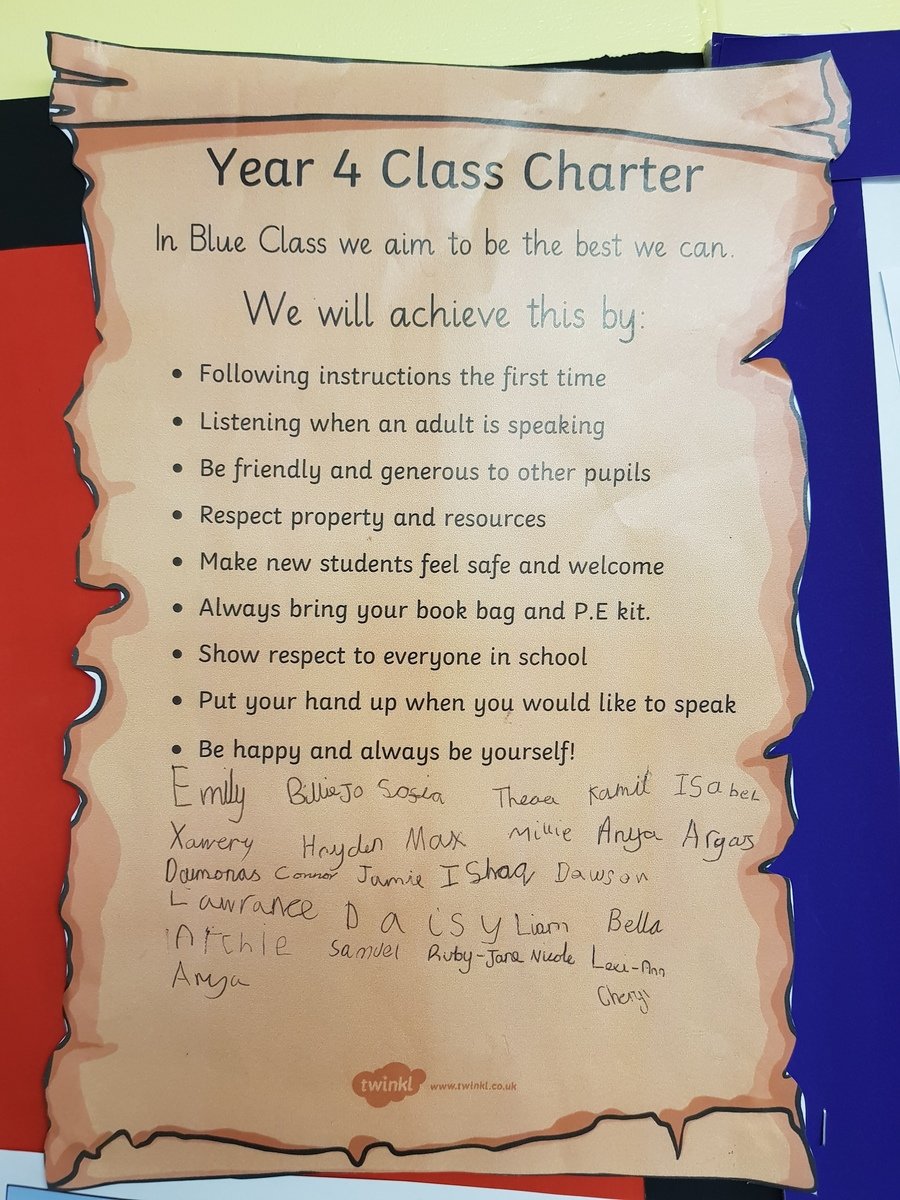 Year 4 Class Charter
In Blue Class we aim to be the best we can.
We will achieve this by:
• Following instructions the first time
• Listening when an adult is speaking
• Be friendly and generous to other pupils
• Respect property and resources
• Make new students feel safe and welcome
• Always bring your book bag and P.E kit.
• Show respect to everyone in school
• Put your hand up when you would like to speak
• Be happy and always be yourself!
Emily BillieJo Kamil ISabeL
Xawery Hayden Max Millie Anya
Connor Jamie IShaq Dawson
Lawrance Daisy Liam Bella
Archie Samuel Ruby-Jane Nicole
Anya
Cheryl
twinkl www.twinkl.co.uk